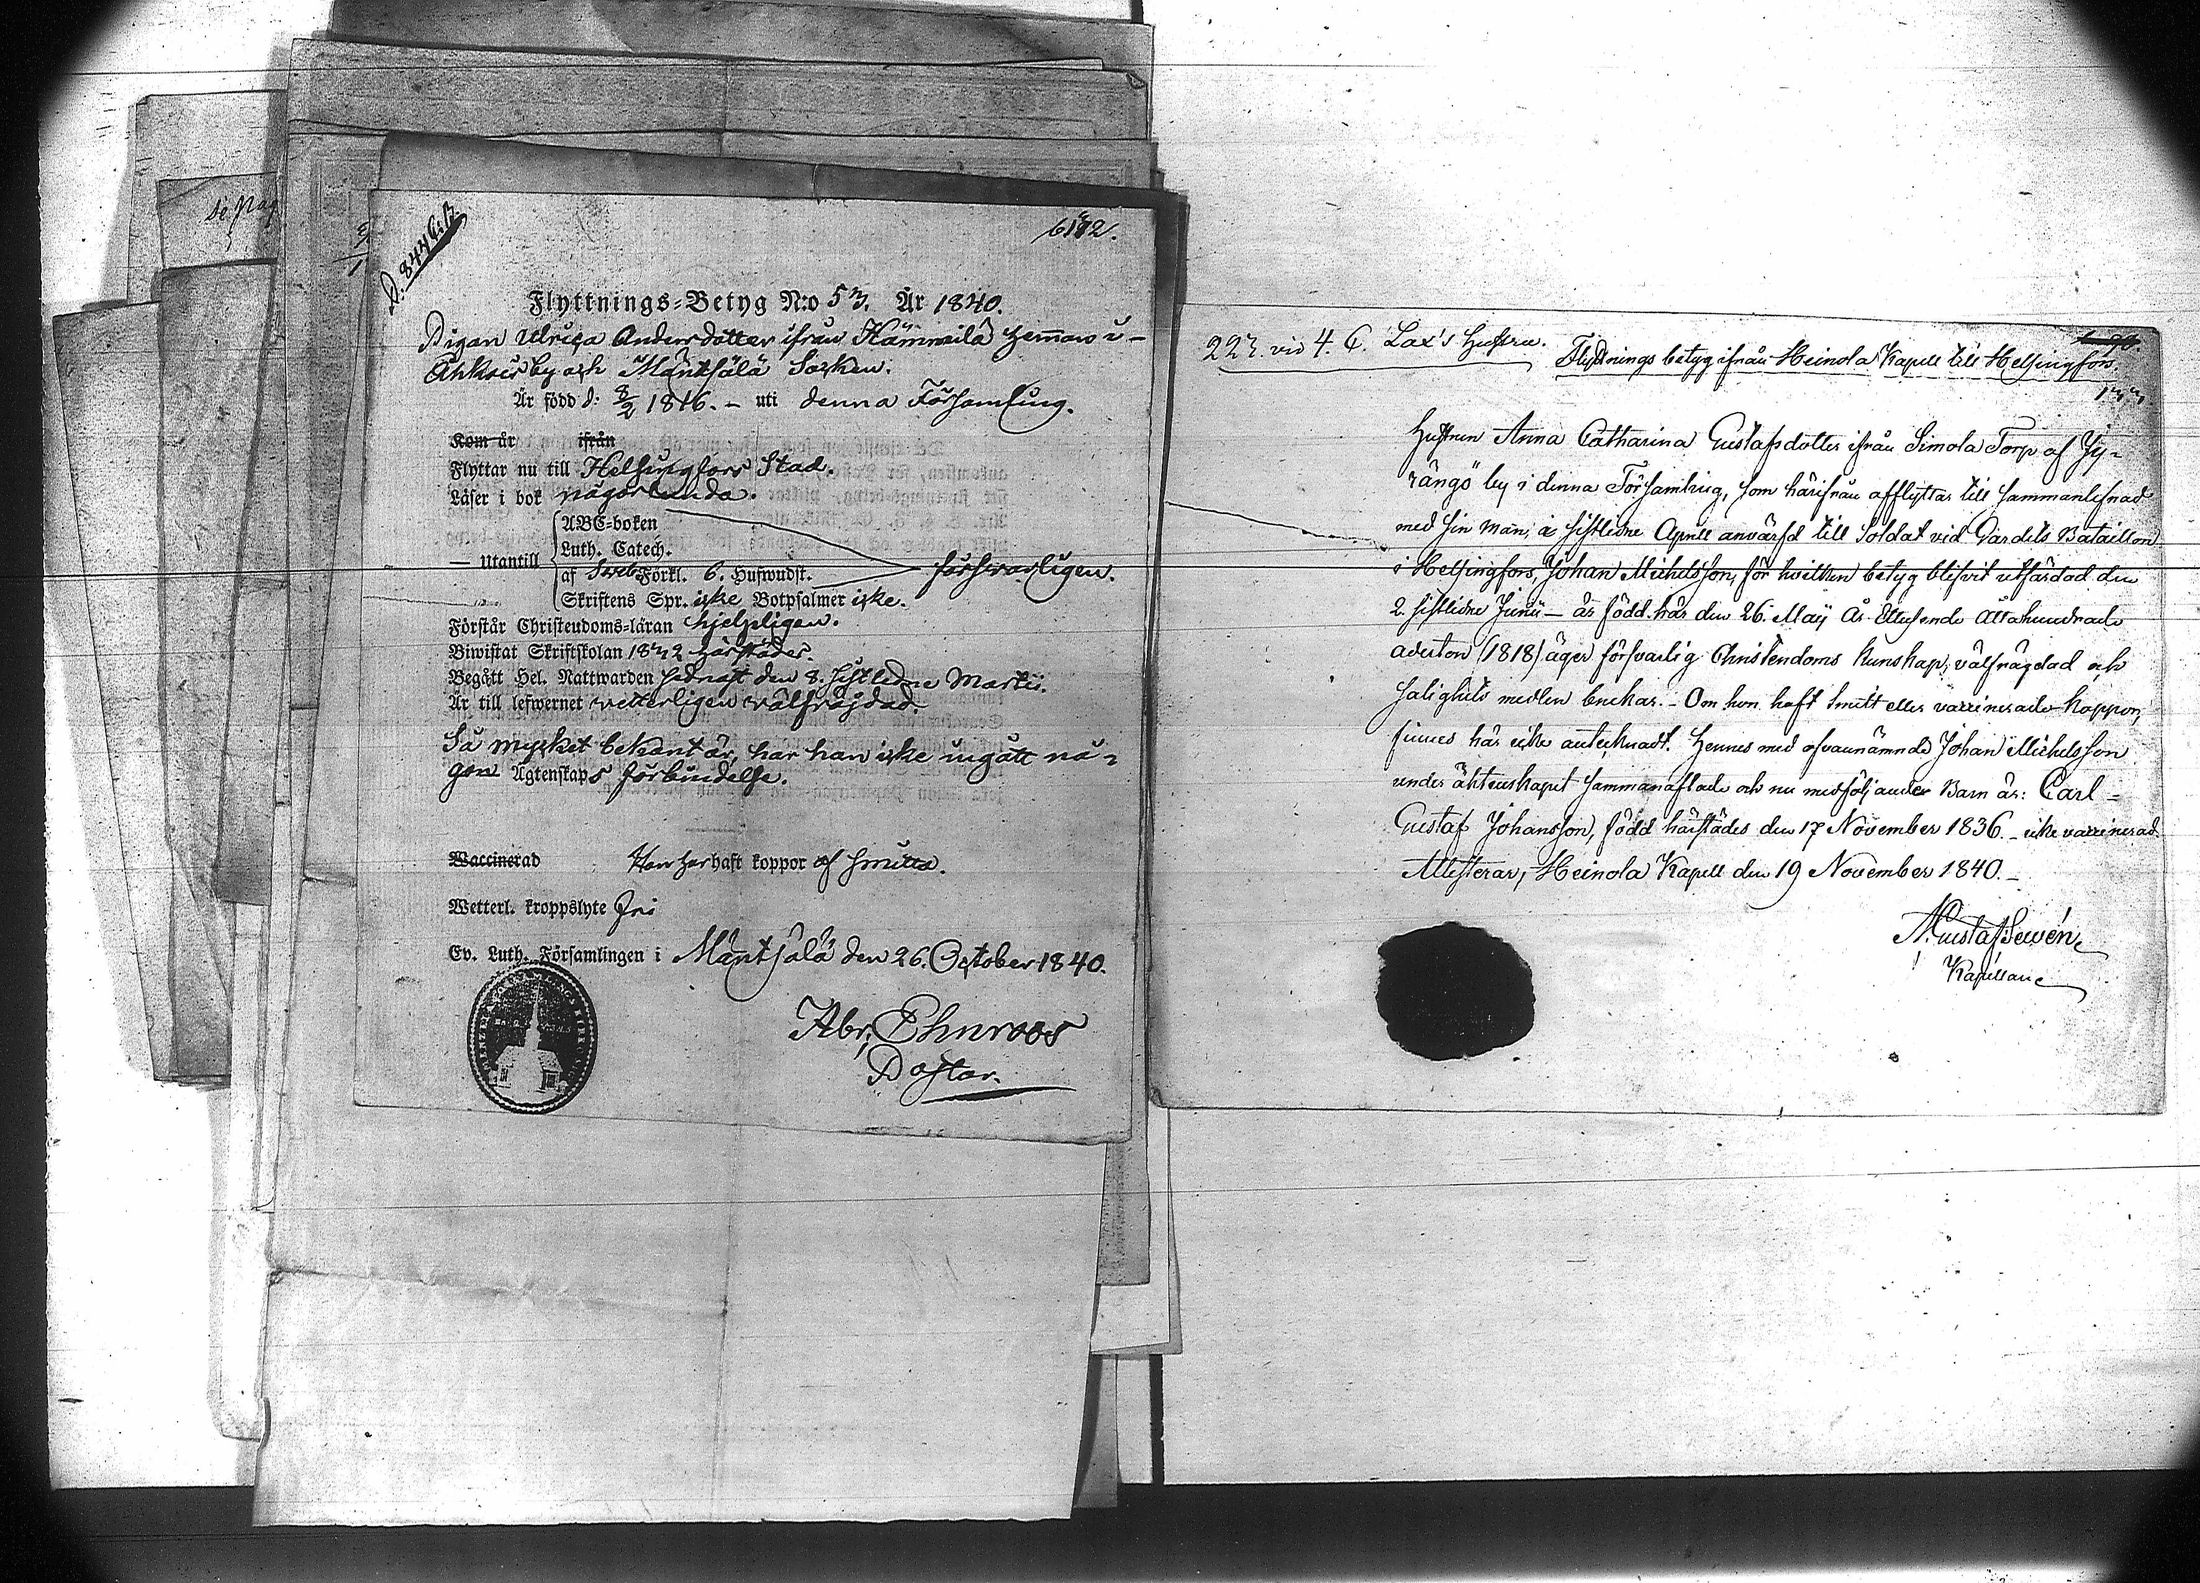 P. 844 G.B.
6182.
Flyttnings-Betyg N:o 53. År 1840.
Pigan Ulrica Andersdotter ifrån Hämmilä Hemman i
Ahkois by och Mäntsälä Socken.
Är född d. 8/2 1816. – uti denna Församling.
Kom år ifrån
Flyttar nu till Helsingfors Stad.
Läser i bok någorlunda.
— utantill
ABC-boken
Luth. Catech.
af Sveb. Förkl. 6. Hufwudst. försvarligen.
Skriftens Spr. icke Botpsalmer icke.
Förstår Christendoms-läran hjelpligen.
Biwistat Skriftskolan 1832 härstädes.
Begått Hel. Nattwarden sednast den 8. sistledne Martii.
Är till lefwernet vetterligen välfrägdad.
Så mycket bekant är, har hon icke ingått nå-
gon Ägtenskaps förbindelse.
Waccinerad Hon har haft koppor af smitta.
Wetterl. kroppslyte fri
Ev. Luth. Församlingen i Mäntsälä den 26. October 1840.
Abr. Ehnroos
Pastor.
223. vid 4. C. Lax's Hustru.
Flyttnings betyg ifrån Heinola Kapell till Helsingfors.
133
Hustrun Anna Catharina Gustafsdotter ifrån Simola Torp af Jy-
rängö by i denna Församling, som härifrån afflyttar till sammanlefnad
med sin man, i sistledne April anvärfd till Soldat vid Gardets Bataillon
i Helsingfors, Johan Michelsson, för hvilken betyg blifvit utfärdad den
2. sistledne Junii – är född här den 26. Maij År Ettusende Åttahundrade
aderton (1818) äger försvarlig Christendoms kunskap, välfrägdad och
salighets medlen brukar. – Om hon haft smitt eller vaccinerade koppor,
finnes här icke antecknadt. Hennes med ofvannämnde Johan Michelsson
under äktenskapet sammanaflade och nu medföljande Barn är: Carl
Gustaf Johansson, född härstädes den 17 November 1836. – icke vaccinerad.
Attesterar, Heinola Kapell den 19 November 1840. –
Gustaf Sewén
Kapellan